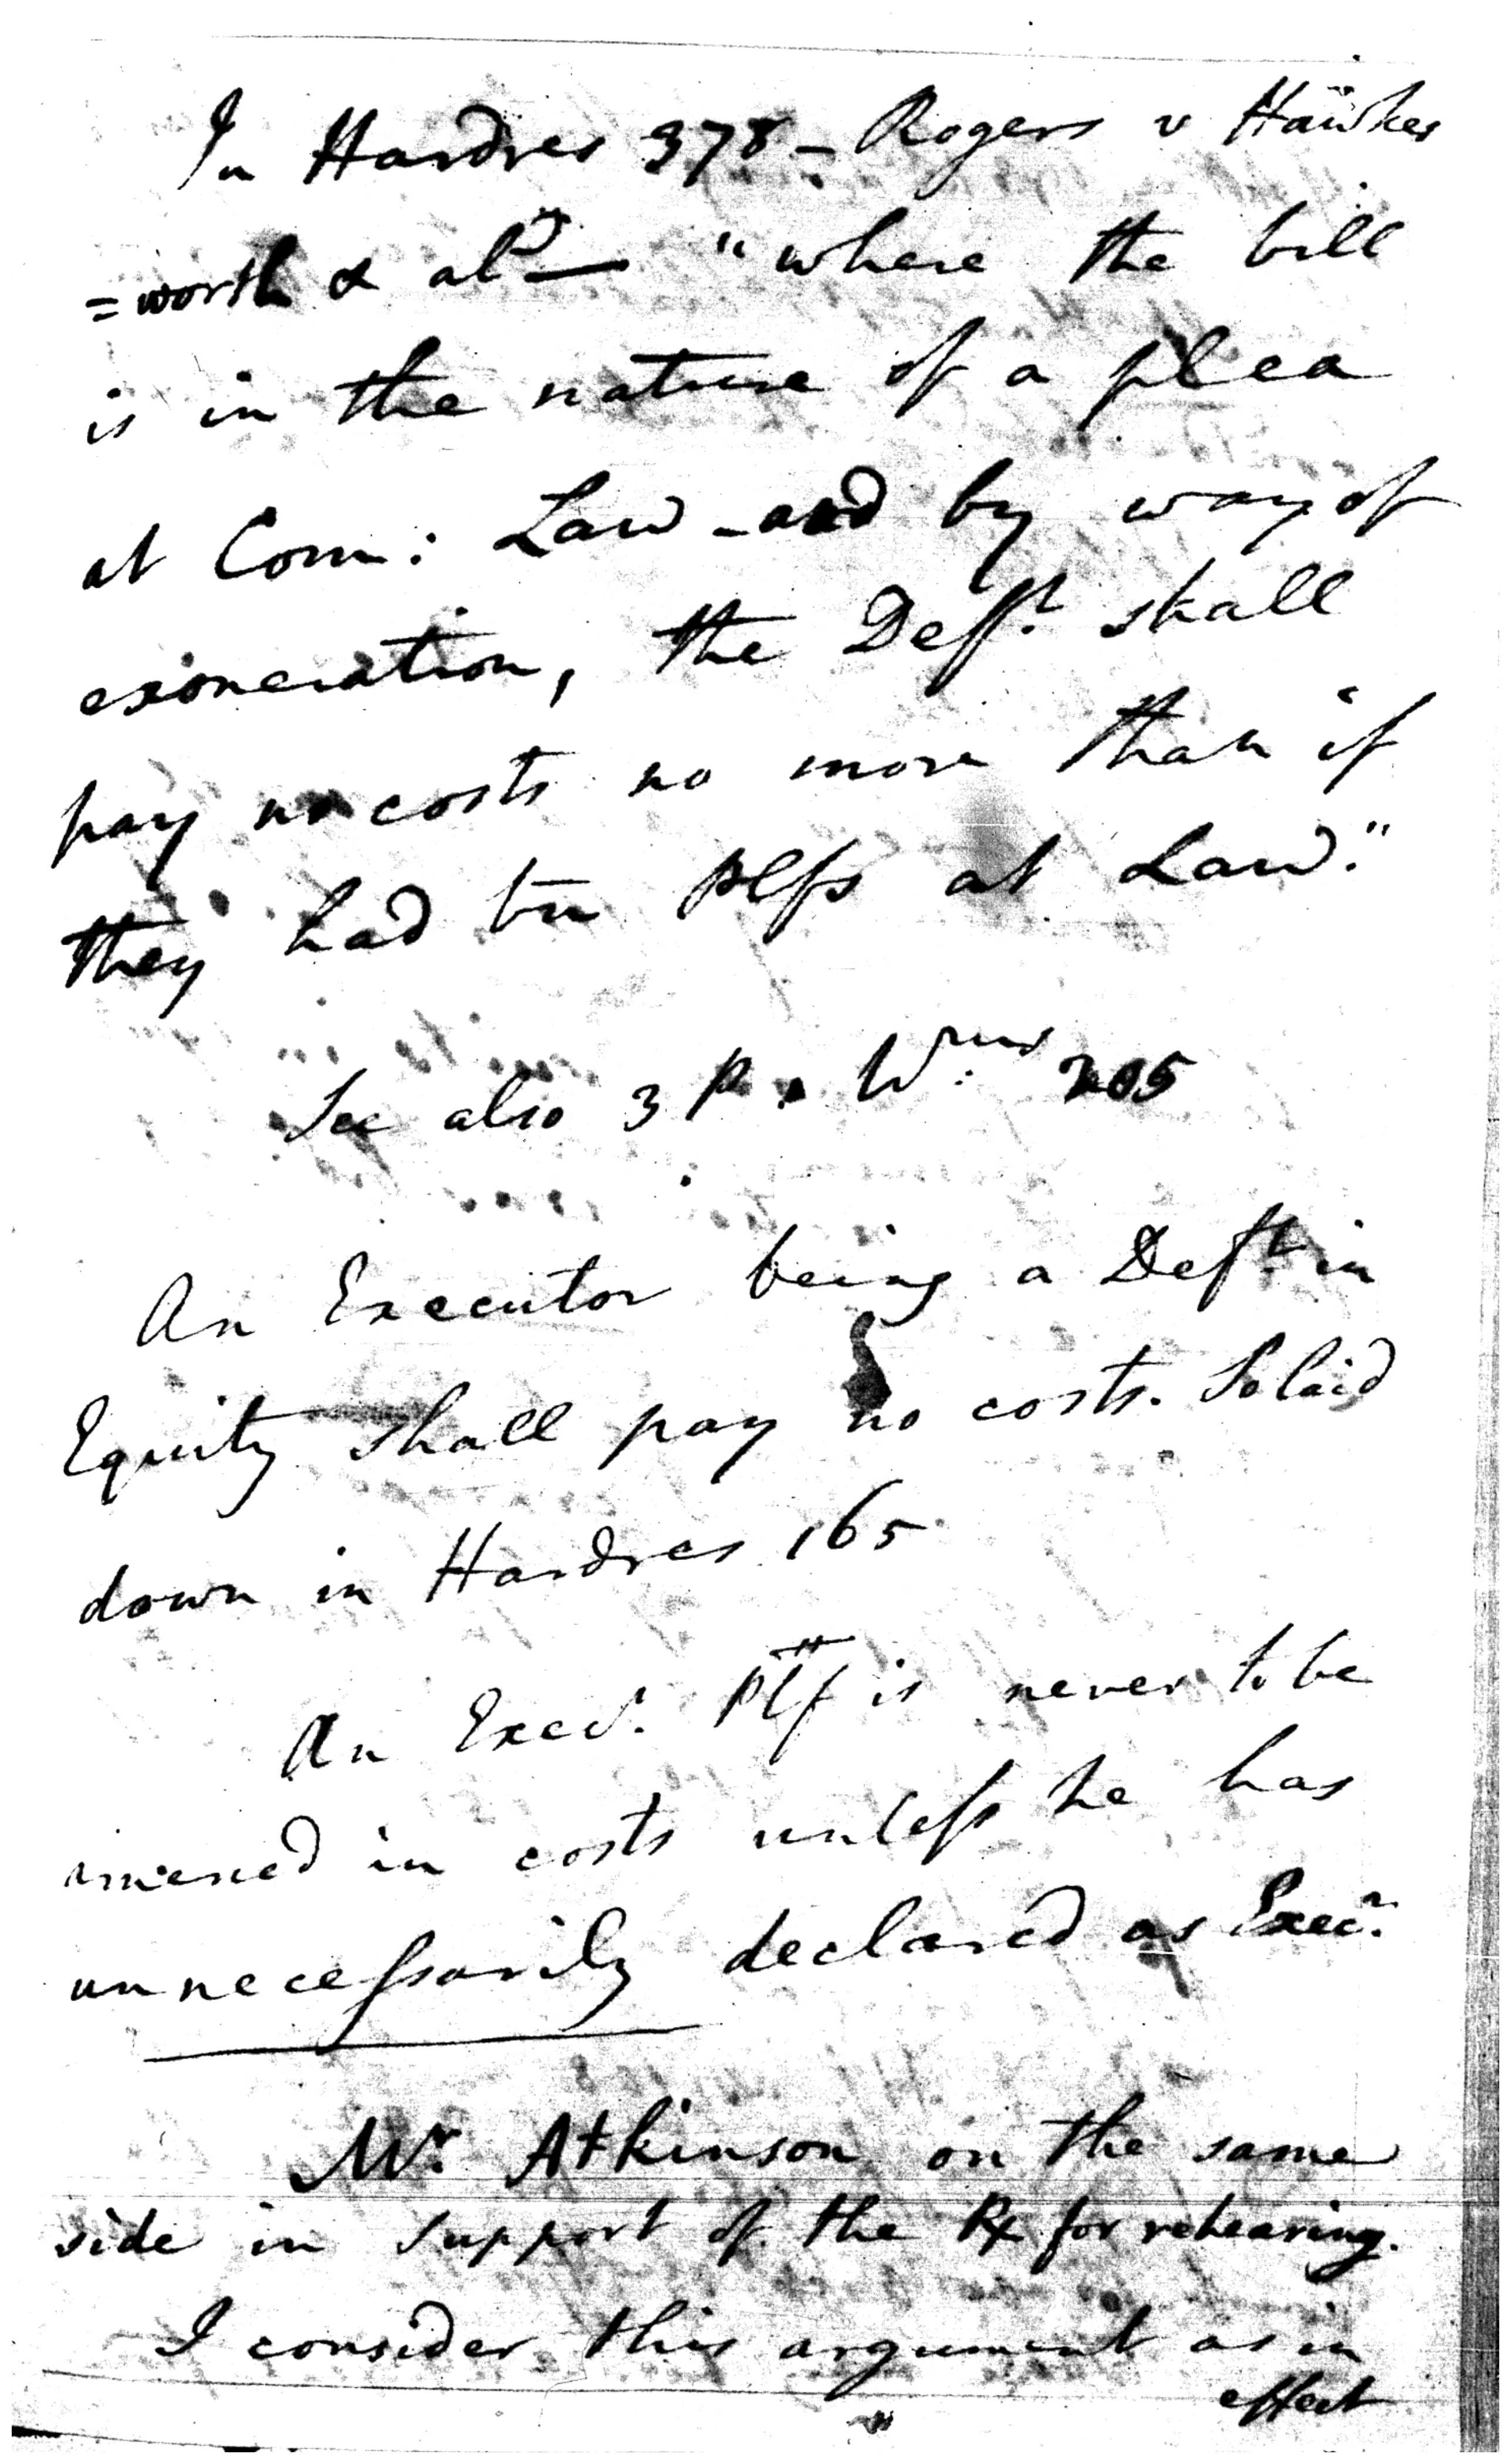 In Hardres 378 – Rogers v Hawkes
=worth & al^s — "where the bill
is in the nature of a plea
at Com: Law – and by way of
exoneration, the Deft. shall
pay no costs no more than if
they had bn Plfs at Law."
See also 3 P. Wms 205
An Executor being a Deft. in
Equity shall pay no costs. So laid
down in Hardres 165
An Exec^r. Plf is never to be
amerced in costs unless he has
unnecessarily declared as Exec^r.
Mr. Atkinson on the same
side in support of the for rehearing.
I consider this argument as in
effect